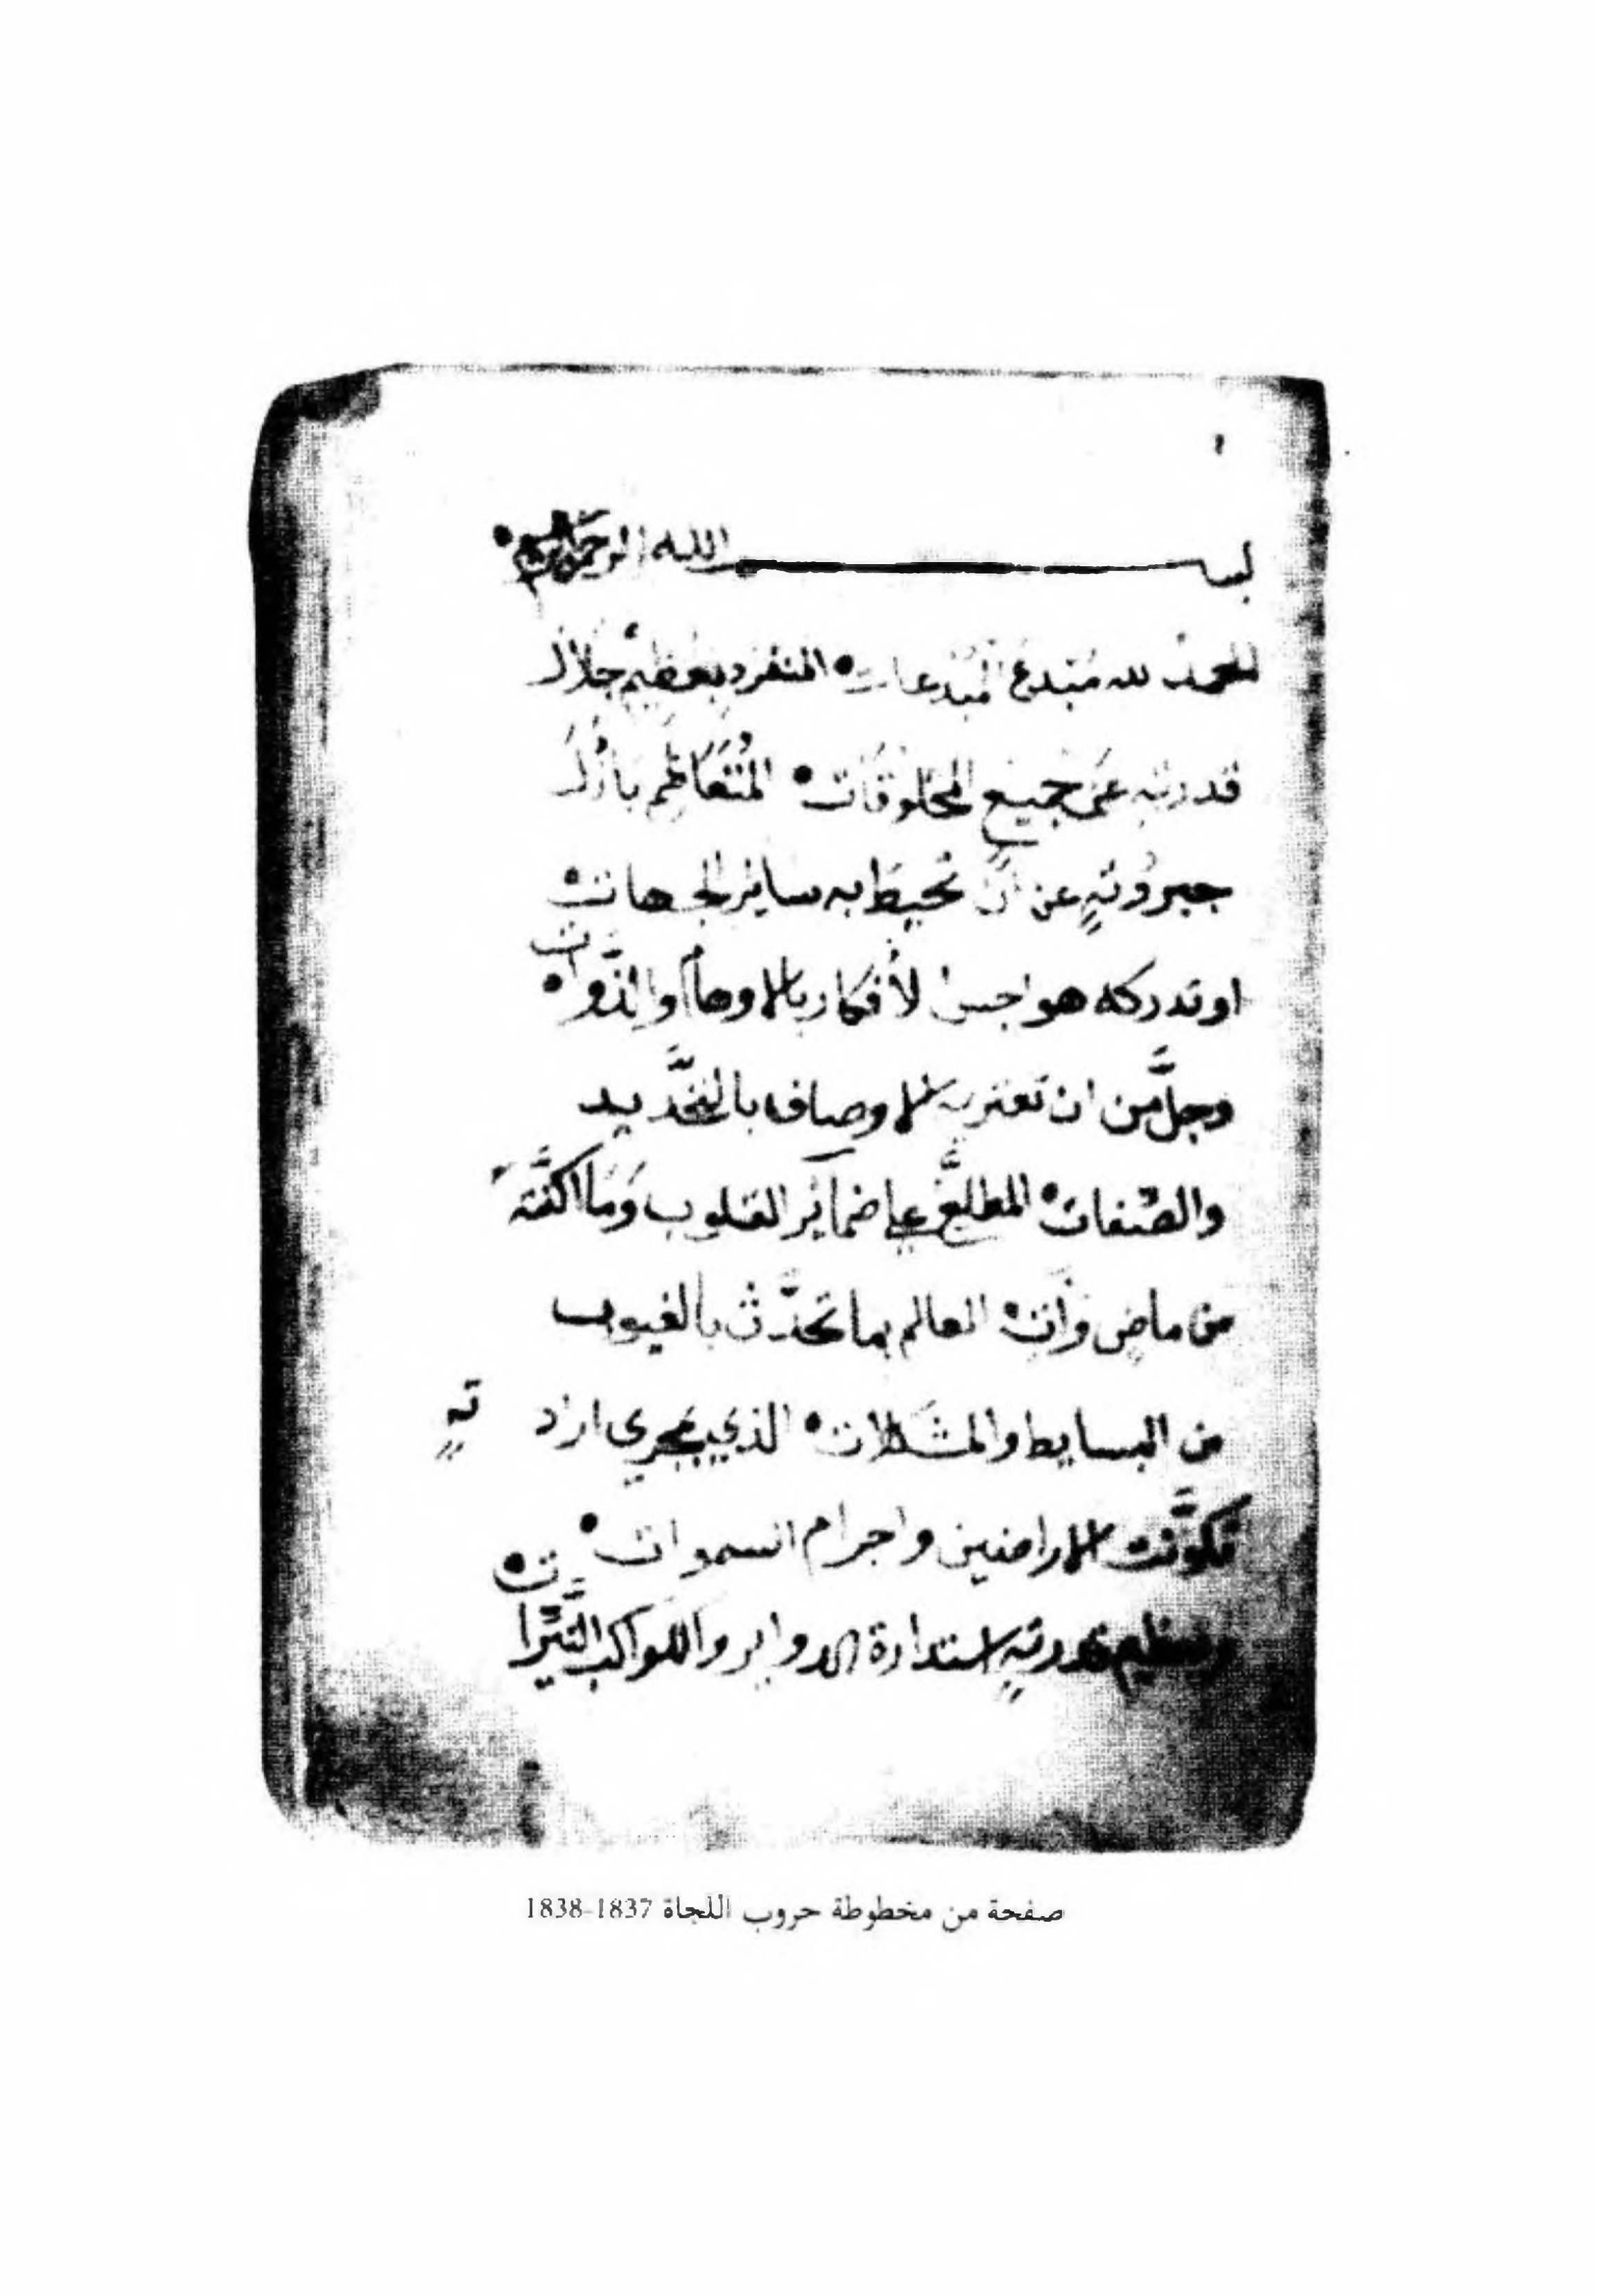 ١
بسم الله الرحمن الرحيم
الحمد لله مبتدع المبدعات المنفرد بعظيم جلال
قدرته عن جميع المخلوقات المُتَعَاظم بأزل
جبروته عن ان تحيط به ساير الجهات
او تدركه هواجس الأفكار بالاوهام والذَّوات
وجلَّ من ان تعتريه الاوصاف بالتحَّديد
والصفات المطلع على ضمآير القلوب وَمَا اكنَّته
من ماضٍ وَآتٍ العالم بما تحدَّث بالغيوب
من البسايط والمشكلات الذي بمجرى ارادتهِ
تكوَّنت الاراضين واجرام السموات
وبعظيم قدرتهِ استدارة الدواير والكواكب النَّيّرات
صفحة من مخطوطة حروب اللجاة 1837-1838